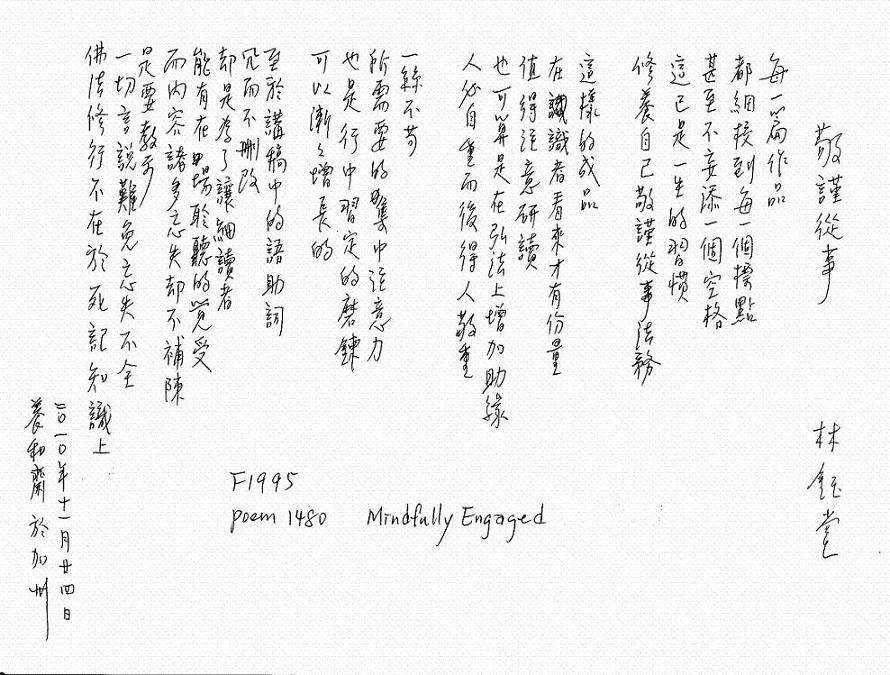 敬謹從事
林鈺堂
每一篇作品
都細按到每一個標點
甚至不妄添一個空格
這已是一生的習慣
修養自己敬謹從事法務
這樣的成品
在識者看來才有份量
值得注意研讀
也可算是在弘法上增加助緣
人必自重而後得人敬重
一絲不苟
所需要的集中注意力
也是行中習定的磨鍊
可以漸漸增長的
至於講稿中的語助詞
冗而不刪改
卻是為了讓細讀者
能有在場聆聽的覺受
而內容諸多忘失卻不補陳
是要教示
一切言說難免忘失不全
佛法修行不在於死記知識上
二〇一〇年十一月廿四日
養和齋 於加州
F1995
poem 1480 Mindfully Engaged